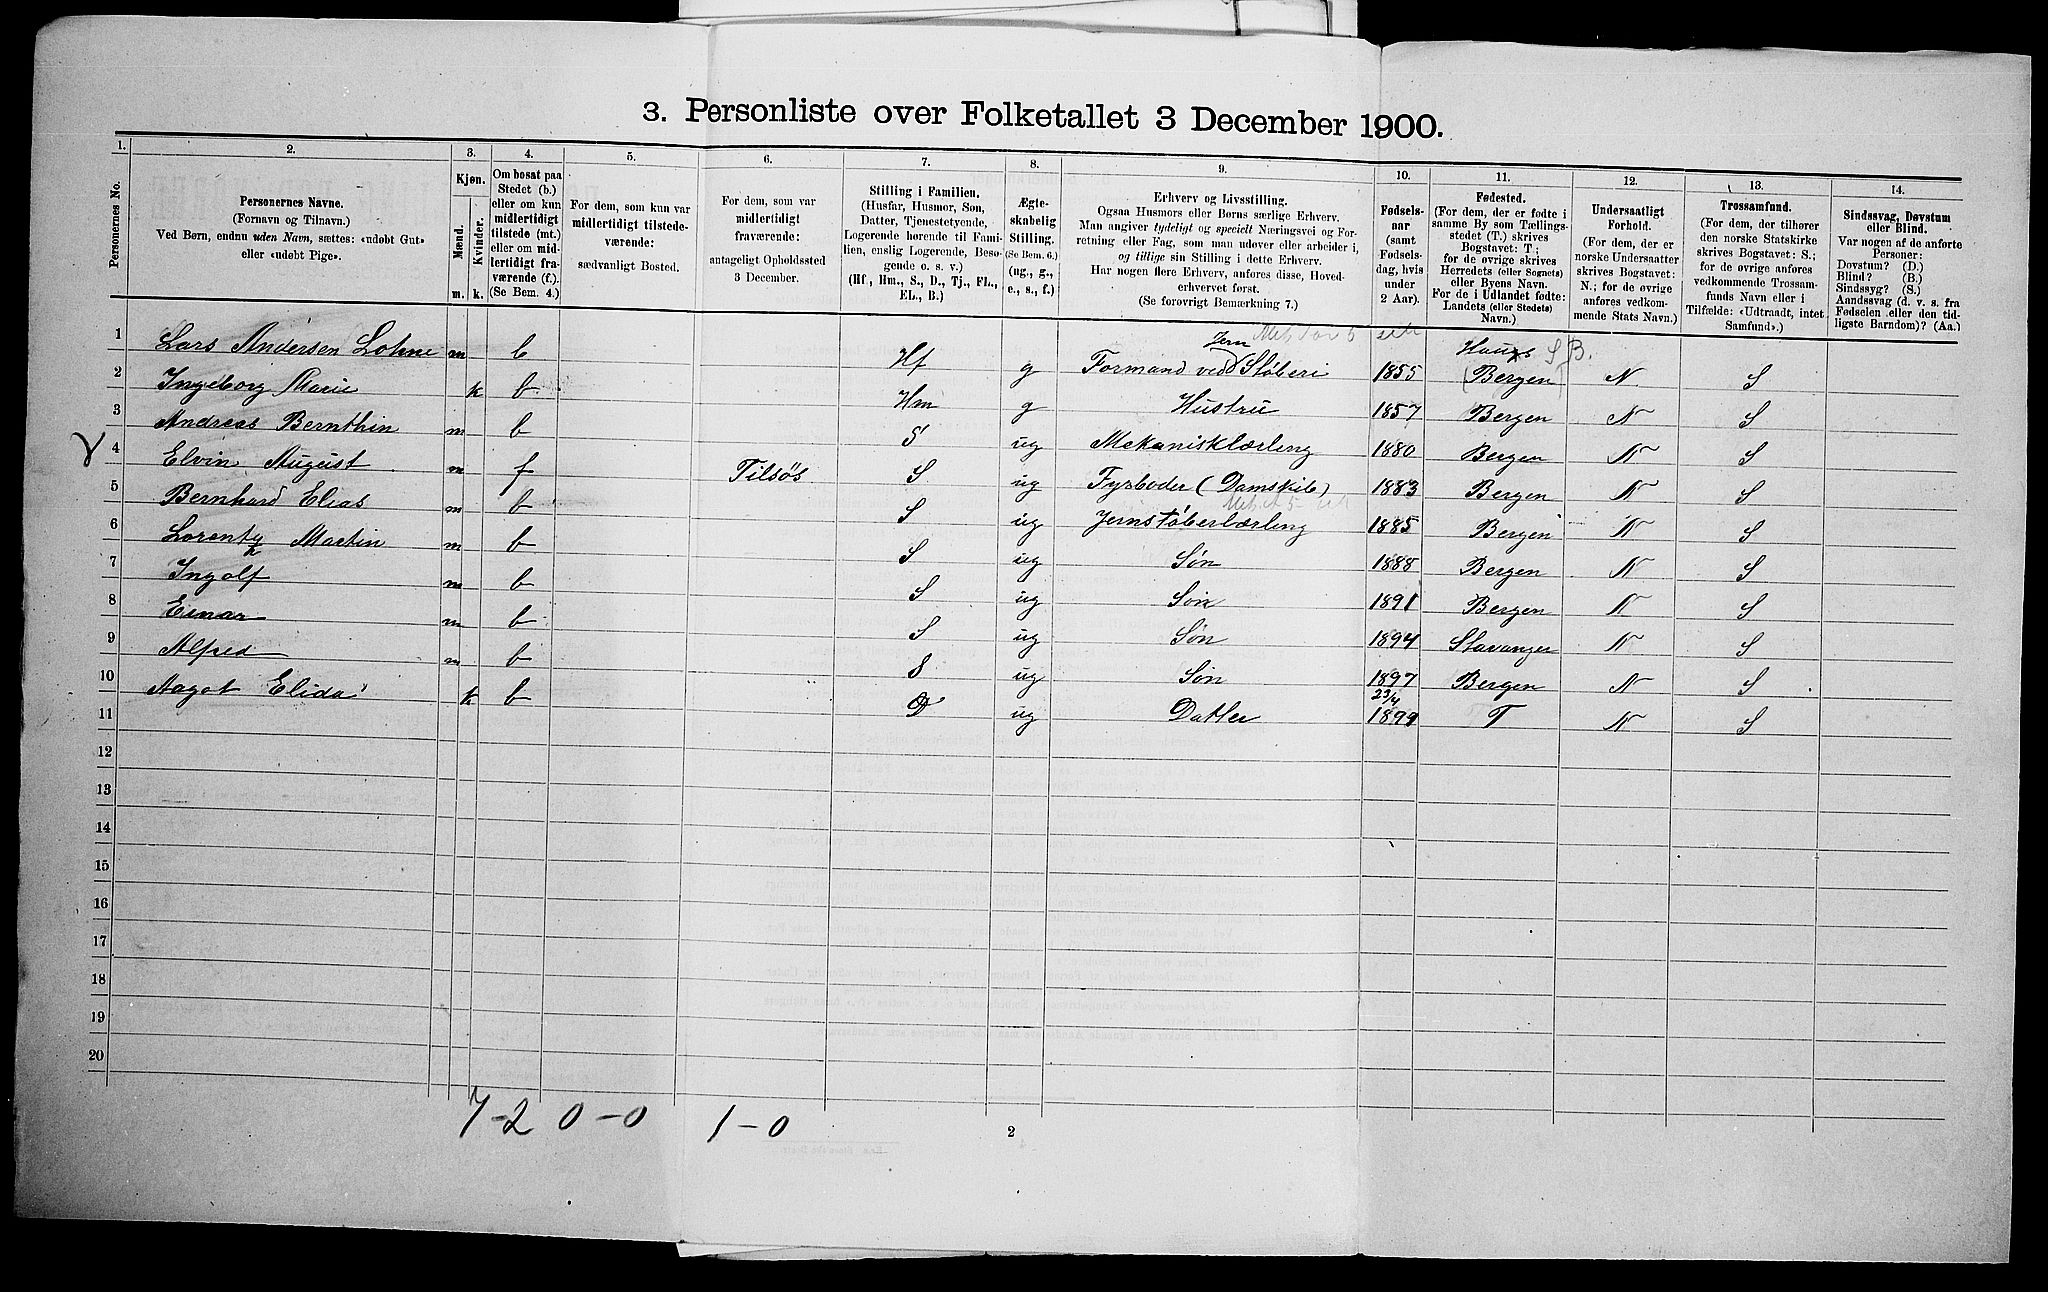 3. Personliste over Folketallet 3 December 1900.
1. 2. 3. 4. 5. 6. 7. 8. 9. 10. 11. 12. 13. 14.
Personernes No.
Personernes Navne.
(Fornavn og Tilnavn.)
Ved Børn, endnu uden Navn, sættes: «udøbt Gut»
eller «udøbt Pige».
Kjøn.
Mænd. Kvinder.
m. k.
Om bosat paa
Stedet (b.)
eller om kun
midlertidigt
tilstede (mt.)
eller om mid-
lertidigt fra-
værende (f.).
(Se Bem. 4.)
For dem, som kun var
midlertidigt tilstede-
værende:
sædvanligt Bosted.
For dem, som var
midlertidigt
fraværende:
antageligt Opholdssted
3 December.
Stilling i Familien.
(Husfar, Husmor, Søn,
Datter, Tjenestetyende,
Logerende hørende til Fami-
lien, enslig Logerende, Besø-
gende o. s. v.)
(Hf., Hm., S., D., Tj., FL.,
EL., B.)
Ægte-
skabelig
Stilling.
(Se Bem. 6.)
(ug., g.,
e., s., f.)
Erhverv og Livsstilling.
Ogsaa Husmors eller Børns særlige Erhverv.
Man angiver tydeligt og specielt Næringsvei og For-
retning eller Fag, som man udøver eller arbeider i,
og tillige sin Stilling i dette Erhverv.
Har nogen flere Erhverv, anføres disse, Hoved-
erhvervet først.
(Se forøvrigt Bemærkning 7.)
Fødsels-
aar
(samt
Fødsels-
dag, hvis
under
2 Aar).
Fødested.
(For dem, der er fødte i
samme By som Tællings-
stedet (T.) skrives
Bogstavet: T;
for de øvrige skrives
Herredets (eller Sognets)
eller Byens Navn.
For de i Udlandet fødte:
Landets (eller Stedets)
Navn.)
Undersaatligt
Forhold.
(For dem, der er
norske Undersaatter
skrives Bogstavet:
N.; for de øvrige
anføres vedkom-
mende Stats Navn.)
Trossamfund.
(For dem, der tilhører
den norske Statskirke
skrives Bogstavet: S.;
for de øvrige anføres
vedkommende Trossam-
funds Navn eller i
Tilfælde: «Udtraadt, intet
Samfund».)
Sindssvag, Døvstum
eller Blind.
Var nogen af de anførte
Personer:
Døvstum? (D.)
Blind? (B.)
Sindssyg? (S.)
Aandssvag (d. v. s. fra
Fødselen eller den tid-
ligste Barndom)? (Aa.)
1 Lars Andersen Lohne m b Hf g Formand ved Jern Støberi 1855 Haus SB. (Bergen) N S
2 Ingeborg Marie k b Hm g Hustru 1857 Bergen N S
3 Andreas Bernthin m b S ug Mekanisklærling 1880 Bergen N S
4 Elvin August m f Tilsøs S ug Fyrbøder (Damskib) 1883 Bergen N S
5 Bernhard Elias m b S ug Jernstøberlærling 1885 Bergen N S
6 Lorentz Martin m b S ug Søn 1888 Bergen N S
7 Ingolf m b S ug Søn 1891 Bergen N S
8 Einar m b S ug Søn 1894 Stavanger N S
9 Alfred m b S ug Søn 1897 Bergen N S
10 Aagot Elida k b D ug Datter 23/4 1899 T N S
11
12
13
14
15
16
17
18
19
20
7-2 0-0 1-0
2